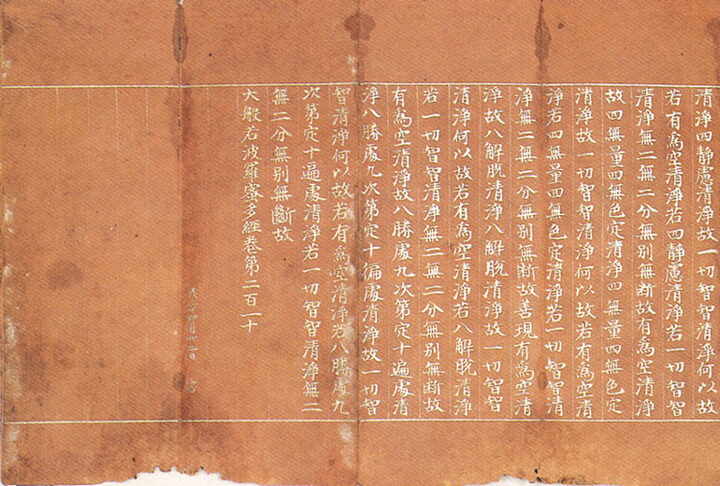 清淨四靜慮清淨故一切智智清淨何以故
若有為空清淨若四靜慮清淨若一切智智
清淨無二無二分無別無斷故有為空清淨
故四無量四無色定清淨四無量四無色定
清淨故一切智智清淨何以故若有為空清
淨若四無量四無色定清淨若一切智智清
淨無二無二分無別無斷故善現有為空清
淨故八解脫清淨八解脫清淨故一切智智
清淨何以故若有為空清淨若八解脫清淨
若一切智智清淨無二無二分無別無斷故
有為空清淨故八勝處九次第定十遍處清
淨八勝處九次第定十徧處清淨故一切智
智清淨何以故若有為空清淨若八勝處九
次第定十遍處清淨若一切智智清淨無二
無二分無別無斷故
大般若波羅蜜多經卷第二百一十